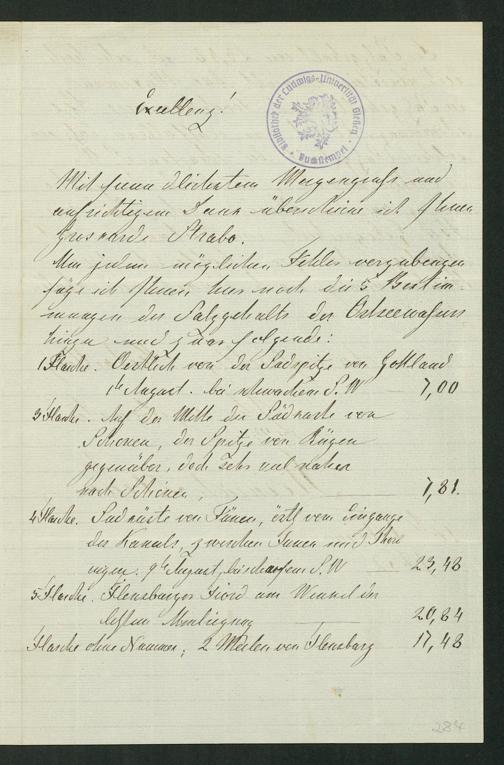 Excellenz!
Bibliothek der Ludwigs-Universität Giessen
Buchstempel
Mit freundlichstem Morgengruss und
aufrichtigem Dank überschicke ich Ihnen
Groskurds Strabo.
Um jedem möglichen Fehler vorzubeugen
füge ich Ihnen hier noch die 5 Bestim
mungen des Salzgehalts des Ostseewassers
hinzu und zwar folgende:
1 Flasche. Oestlich von der Südspitze von Gottland
1te August. bei schwachem S.W 7,00
3 Flasche. Auf der Mitte der Südküste von
Schonen, der Spitze von Rügen
gegenüber, doch sehr viel näher
nach Schonen, 7,81.
4 Flasche. Südküste von Fünen, östl vom Eingange
des Kanals, zwischen Fünen und
9te August, bei scharfem S.W 23,48
5 Flasche. Flensburger Fiord am Winkel der
letzten Umbiegung 20,84
Flasche ohne Nummer; 2 Meilen von Flensburg 17,48
284